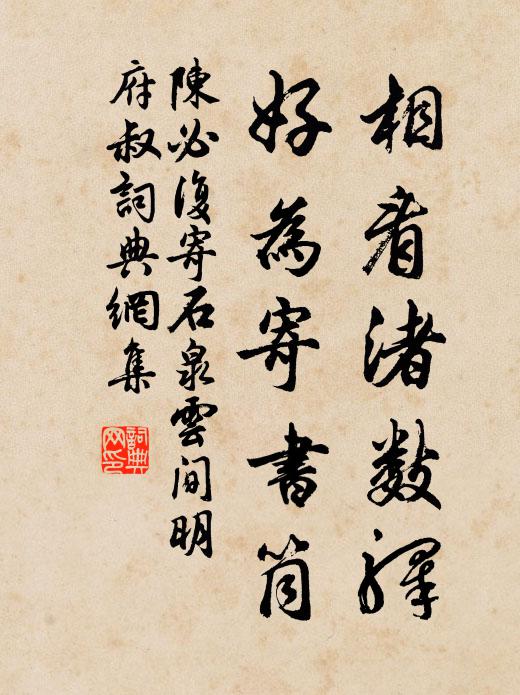 相看渚數驛
好為寄書筒
陳必復寄石泉雲間明
府叔詞典網集
詞典網印